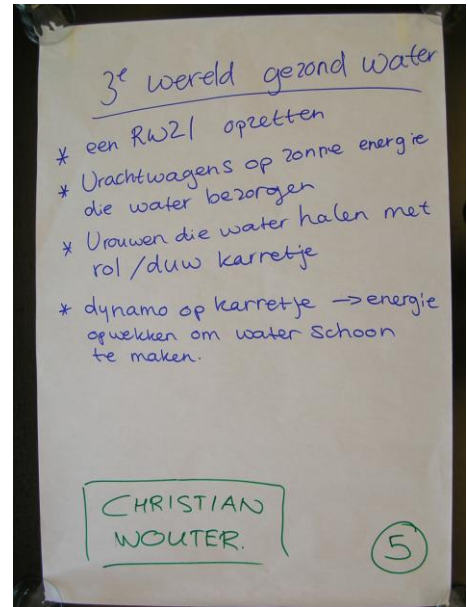 3e wereld gezond water
* een RWZI opzetten
* Vrachtwagens op zonne energie
die water bezorgen
* Vrouwen die water halen met
rol/duw karretje
* dynamo op karretje → energie
opwekken om water schoon
te maken.
CHRISTIAN
WOUTER.
5